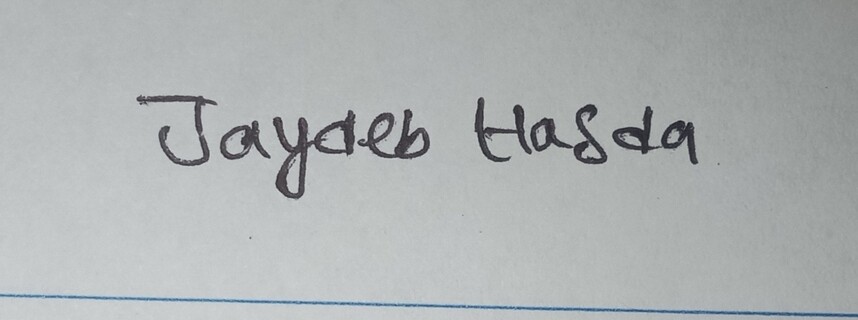 Jaydeb Hasda